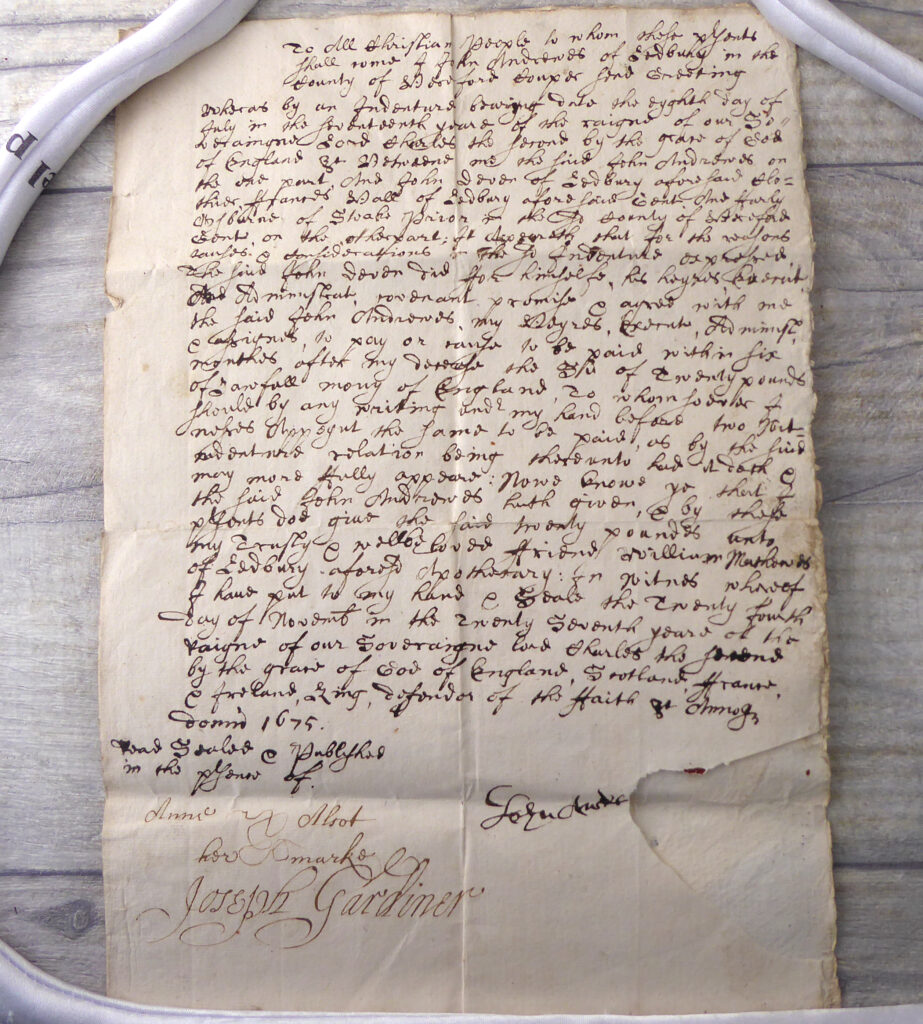 To All Christian People to whom these psents
shall come I John Andrewes of Ledbury in the
County of Hereford Couper send Greeting
Wheras by an Indenture bearing date the eyghth day of
July in the seventeenth yeare of the raigne of our So=
veraigne Lord Charles the second by the grace of God
of England &c Betweene me the said John Andrewes on
the one part And John Deven of Ledbury aforesaid Clo=
thier, ffrances Hall of Ledbury aforesaid Gent And Harly
of Stoake Prior in the sd County of Hereford
Gent, on the otherpart; It Apereth that for the reasons
causes & considerations in the sd Indenture expresed
The said John Deven did for himselfe, his heyres, Execut.
And Administrat, covenant promise & agree with me
the said John Andrewes, my Heyres, Execut, Administ,
& assignes, to pay or cause to be paid within six
monthes after my decease the Sū of Twenty pounds
of Lawfull mony of England, To whomsoever I
should by any writing undr my hand before two Wit=
neses Appoynt the same to be paid, as by the said
Indenture relation being thereunto had it doth
may more ffully appeare: Nowe knowe ye that I
the said John Andrewes hath given, & by these
psents doe give the said twenty pounds unto
my Trusty & wellbeloved ffriend William Mathewes
of Ledbury aforesd Apothecary: In Witnes whereof
I have put to my hand & Seale the Twenty fourth
day of Novemb in the Twenty Seventh yeare of the
raigne of our Soveraigne lord Charles the second
by the grace of God of England, Scotland, ffrance,
& Ireland, King, defendor of the ffaith &c Annoq
domd 1675.
Read Sealed & Published
in the psence of.
John Andre
Anne Abot
her marke
Joseph Gardiner